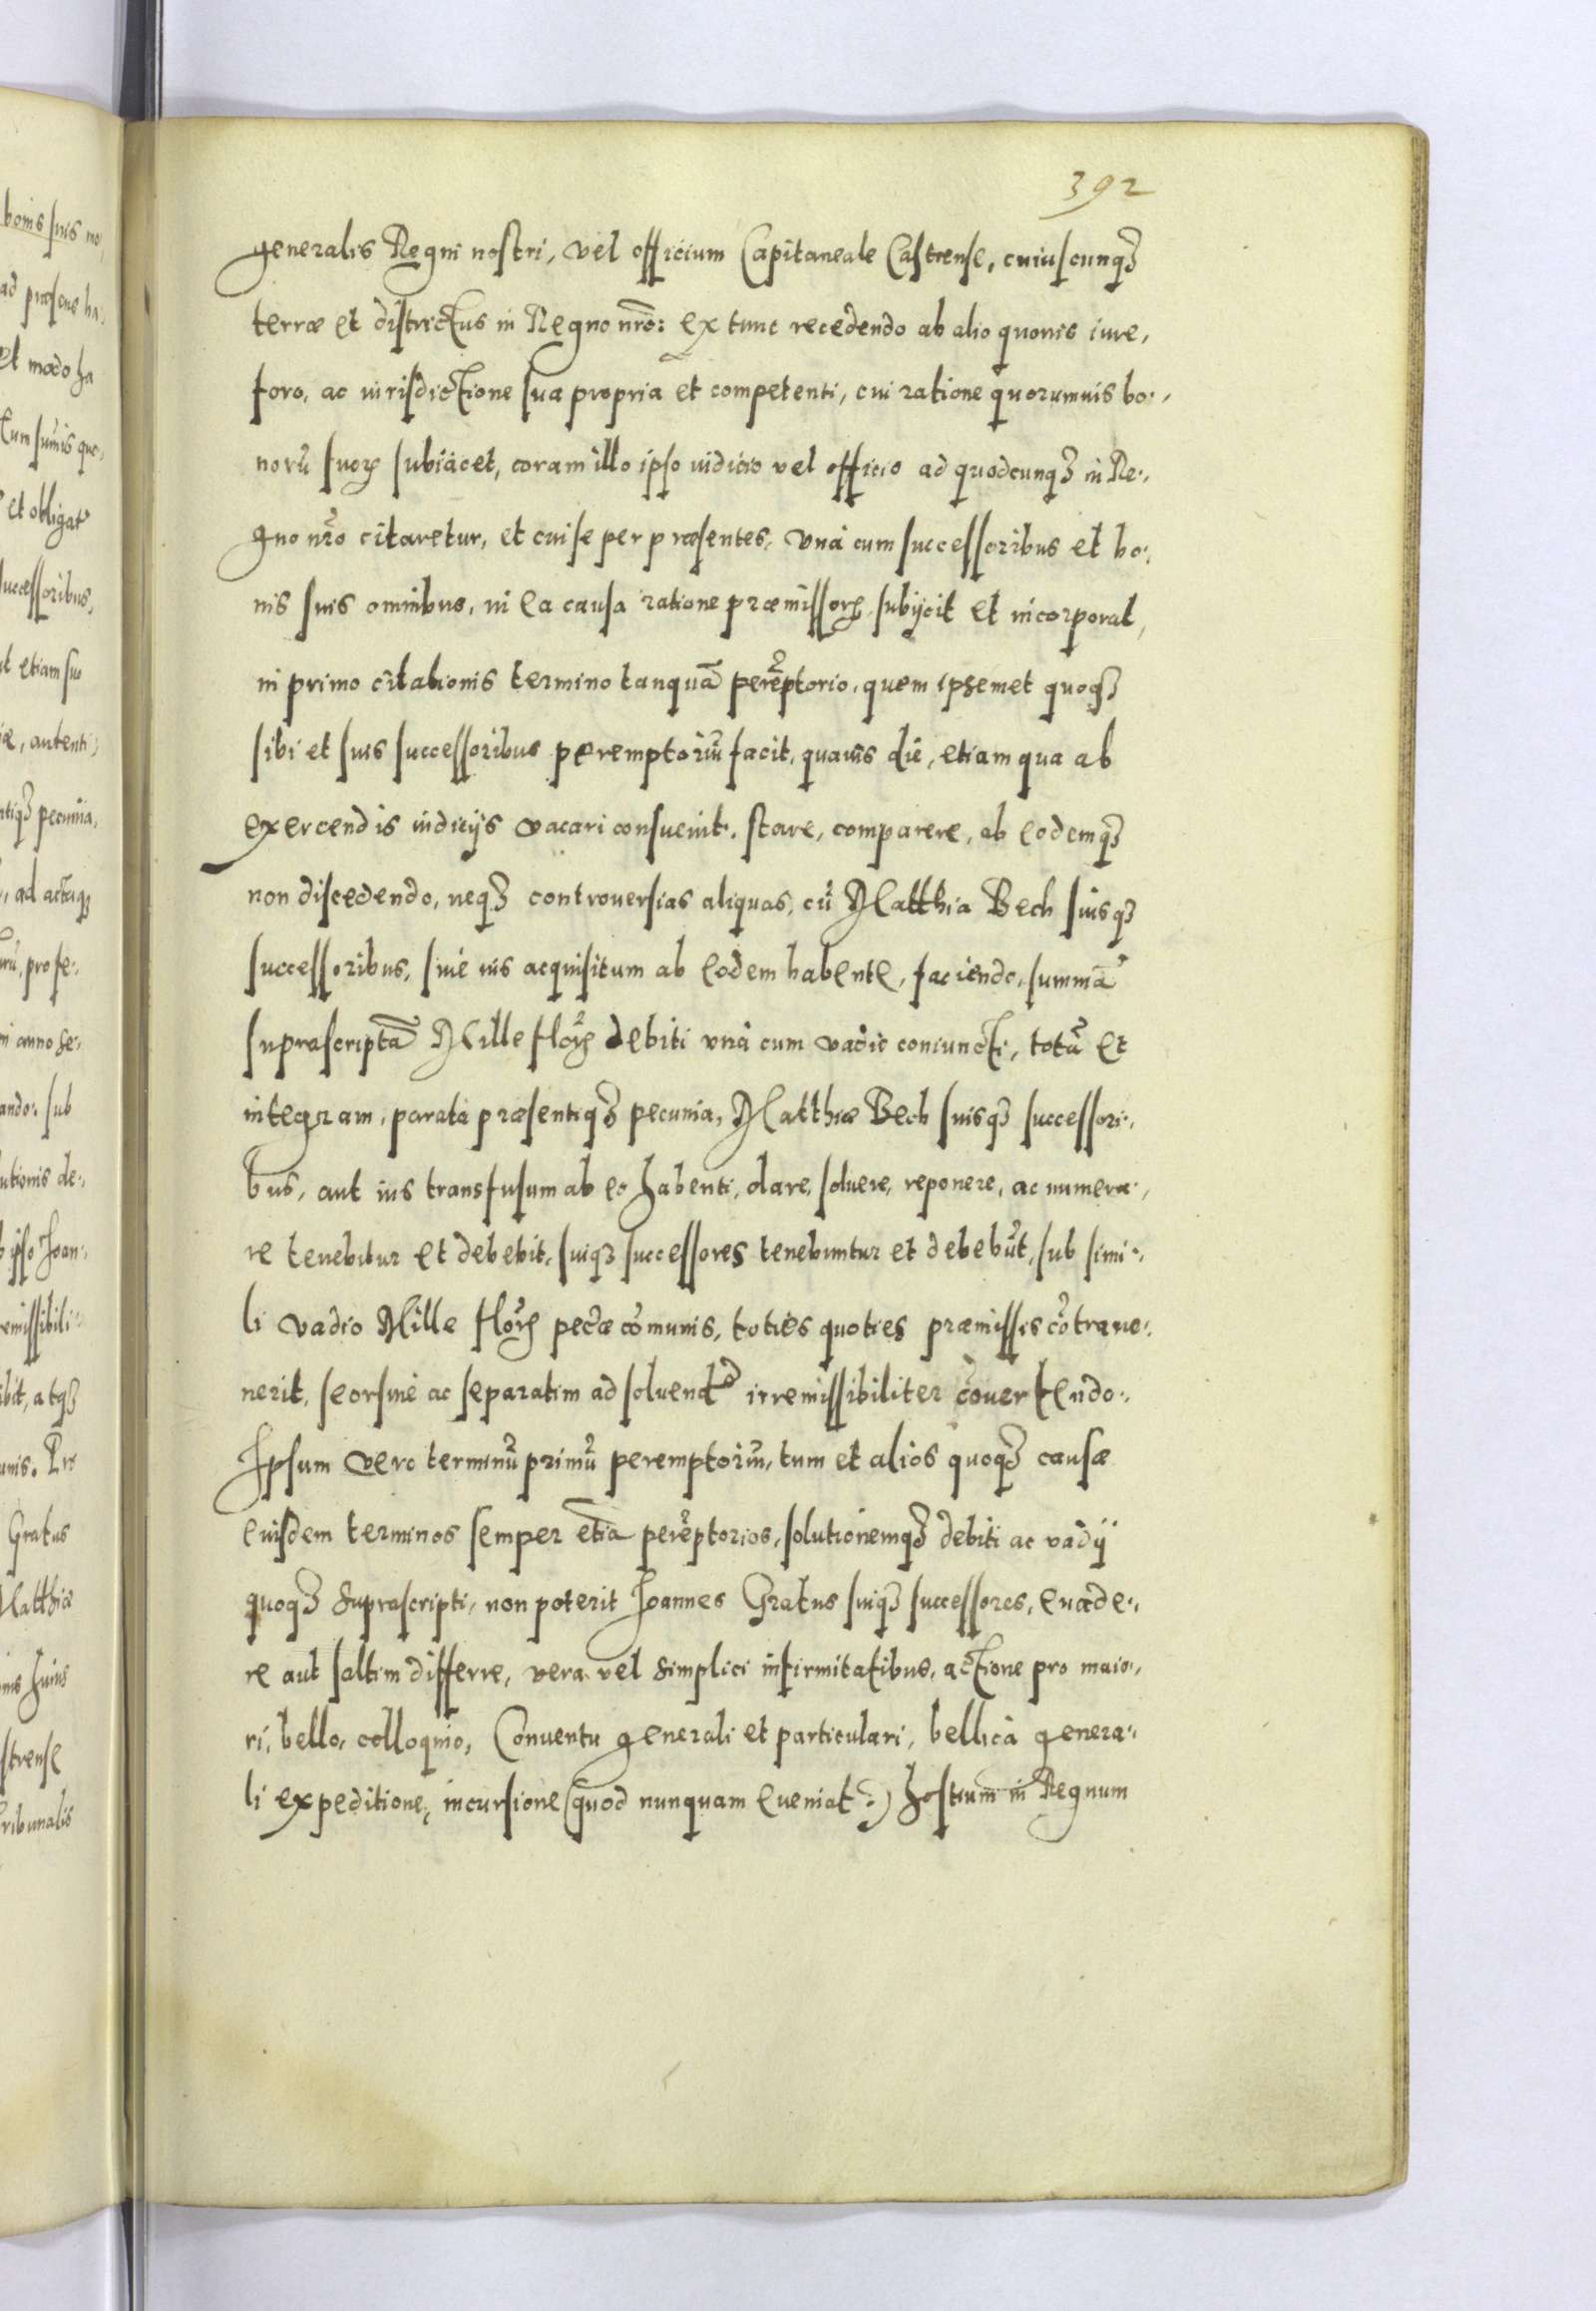 392
generalis Regni nostri, vel officium Capitaneale Castrense, cuiuscunqȝ
terræ et districtus in Regno nr̃o: ex tunc recedendo ab alio quouis iure,
foro, ac iurisdictione sua propria et competenti, cui ratione quorumuis bo.,
norũ suoꝝ subiacet, coram illo ipso iudicio vel officio ad quodcunqȝ in Re.,
gno nr̃o citaretur, et cui se per præsentes, vnà cum successoribus et bo.,
nis suis omnibus, in ea causa ratione præmissoꝝ subijcit et incorporat,
in primo citationis termino tanquã perẽptorio, quem ipsemet quoqȝ
sibi et suis successoribus peremptoriũ facit, quauis die, etiam qua ab
exercendis iudicijs vacari consueuit. stare, comparere, ab eodemqȝ
non discedendo, neqȝ controuersias aliquas, cũ Matthia Bech suisqȝ
successoribus, siue ius acquisitum ab eodem habente, faciendo, summã
suprascriptã Mille floꝝ debiti vnà cum vadio coniuncti, totã et
integram, parata præsentiqȝ pecunia, Matthiæ Bech suisqȝ successori.,
bus, aut ius transfusum ab eo habenti, dare, soluere, reponere, ac numera.,
re tenebitur et debebit, suiqȝ successores tenebuntur et debebũt, sub simi.,
li vadio Mille floꝝ pecũæ cõmunis, toties quoties præmissis cõtraue.,
nerit, seorsiuè ac separatim ad soluendũ irremissibiliter cõuertendo.,
Ipsum vero terminũ primũ peremptoriũ, tum et alios quoqȝ causæ
eiusdem terminos semper etiã perẽptorios, solutionemqȝ debiti ac vadij
quoqȝ suprascripti, non poterit Joannes Gratus suiqȝ successores, euade.,
re aut saltim differre, vera vel simplici infirmitatibus, actione pro maio.,
ri, bello, colloquio, Conuentu generali et particulari, bellicà genera.,
li expeditione, incursione (quod nunquam eueniat:) hostium in Regnum